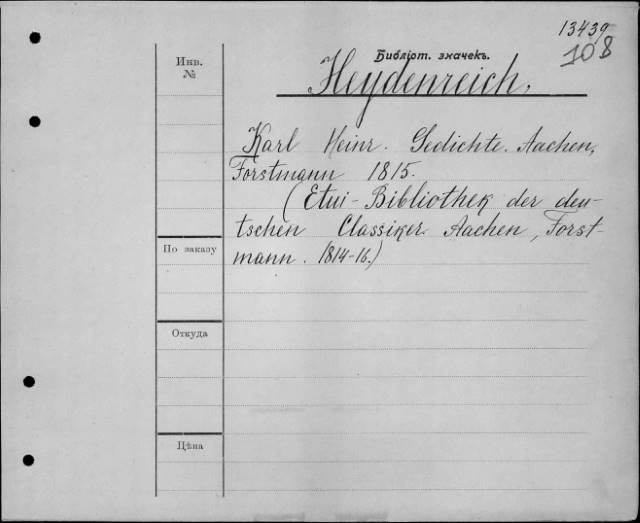 13439
108
Библіот. значекъ.
Heydenreich,
Инв.
№
Karl Heinr. Gedichte. Aachen,
Forstmann 1815.
(Etui-Bibliothek der deu-
tschen Classiker. Aachen, Forst-
mann. 1814-16.)
По заказу
Откуда
Цѣна